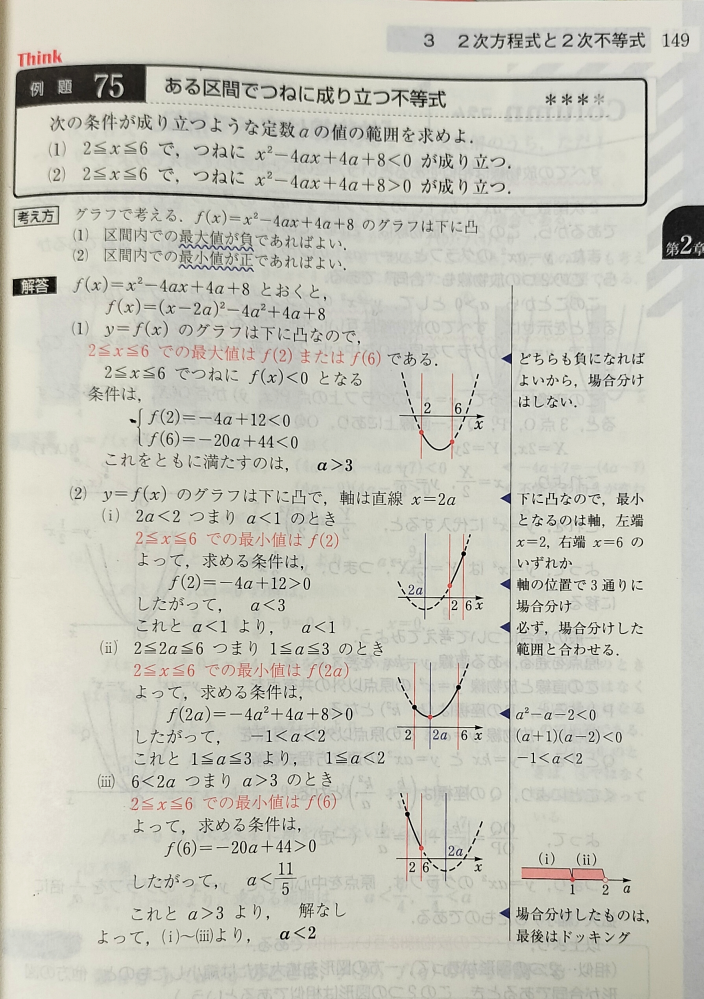 3 2次方程式と2次不等式 149
Think
例題 75 ある区間でつねに成り立つ不等式 ****
次の条件が成り立つような定数aの値の範囲を求めよ.
(1) 2≦x≦6 で,つねに x²-4ax+4a+8<0 が成り立つ.
(2) 2≦x≦6 で,つねに x²-4ax+4a+8>0 が成り立つ.
考え方 グラフで考える. f(x)=x²-4ax+4a+8 のグラフは下に凸
(1) 区間内での最大値が負であればよい.
(2) 区間内での最小値が正であればよい.
第2章
解答 f(x)=x²-4ax+4a+8 とおくと,
f(x)=(x-2a)²-4a²+4a+8
(1) y=f(x) のグラフは下に凸なので,
2≦x≦6 での最大値は f(2) または f(6) である.
2≦x≦6 でつねに f(x)<0 となる
条件は,
f(2)=-4a+12<0
f(6)=-20a+44<0
これをともに満たすのは, a>3
2 6 x
どちらも負になれば
よいから,場合分け
はしない.
(2) y=f(x) のグラフは下に凸で,軸は直線 x=2a
(i) 2a<2 つまり a<1 のとき
2≦x≦6 での最小値は f(2)
よって,求める条件は,
f(2)=-4a+12>0
したがって, a<3
これと a<1 より, a<1
2a 2 6 x
下に凸なので,最小
となるのは軸,左端
x=2,右端 x=6 の
いずれか
軸の位置で3通りに
場合分け
必ず,場合分けした
範囲と合わせる.
(ii) 2≦2a≦6 つまり 1≦a≦3 のとき
2≦x≦6 での最小値は f(2a)
よって,求める条件は,
f(2a)=-4a²+4a+8>0
したがって, -1<a<2
これと 1≦a≦3 より, 1≦a<2
2 2a 6 x
a²-a-2<0
(a+1)(a-2)<0
-1<a<2
(iii) 6<2a つまり a>3 のとき
2≦x≦6 での最小値は f(6)
よって,求める条件は,
f(6)=-20a+44>0
したがって, a<11/5
これと a>3 より, 解なし
よって,(i)~(iii)より, a<2
2 6 2a x
(i) (ii)
1 2 a
場合分けしたものは,
最後はドッキング